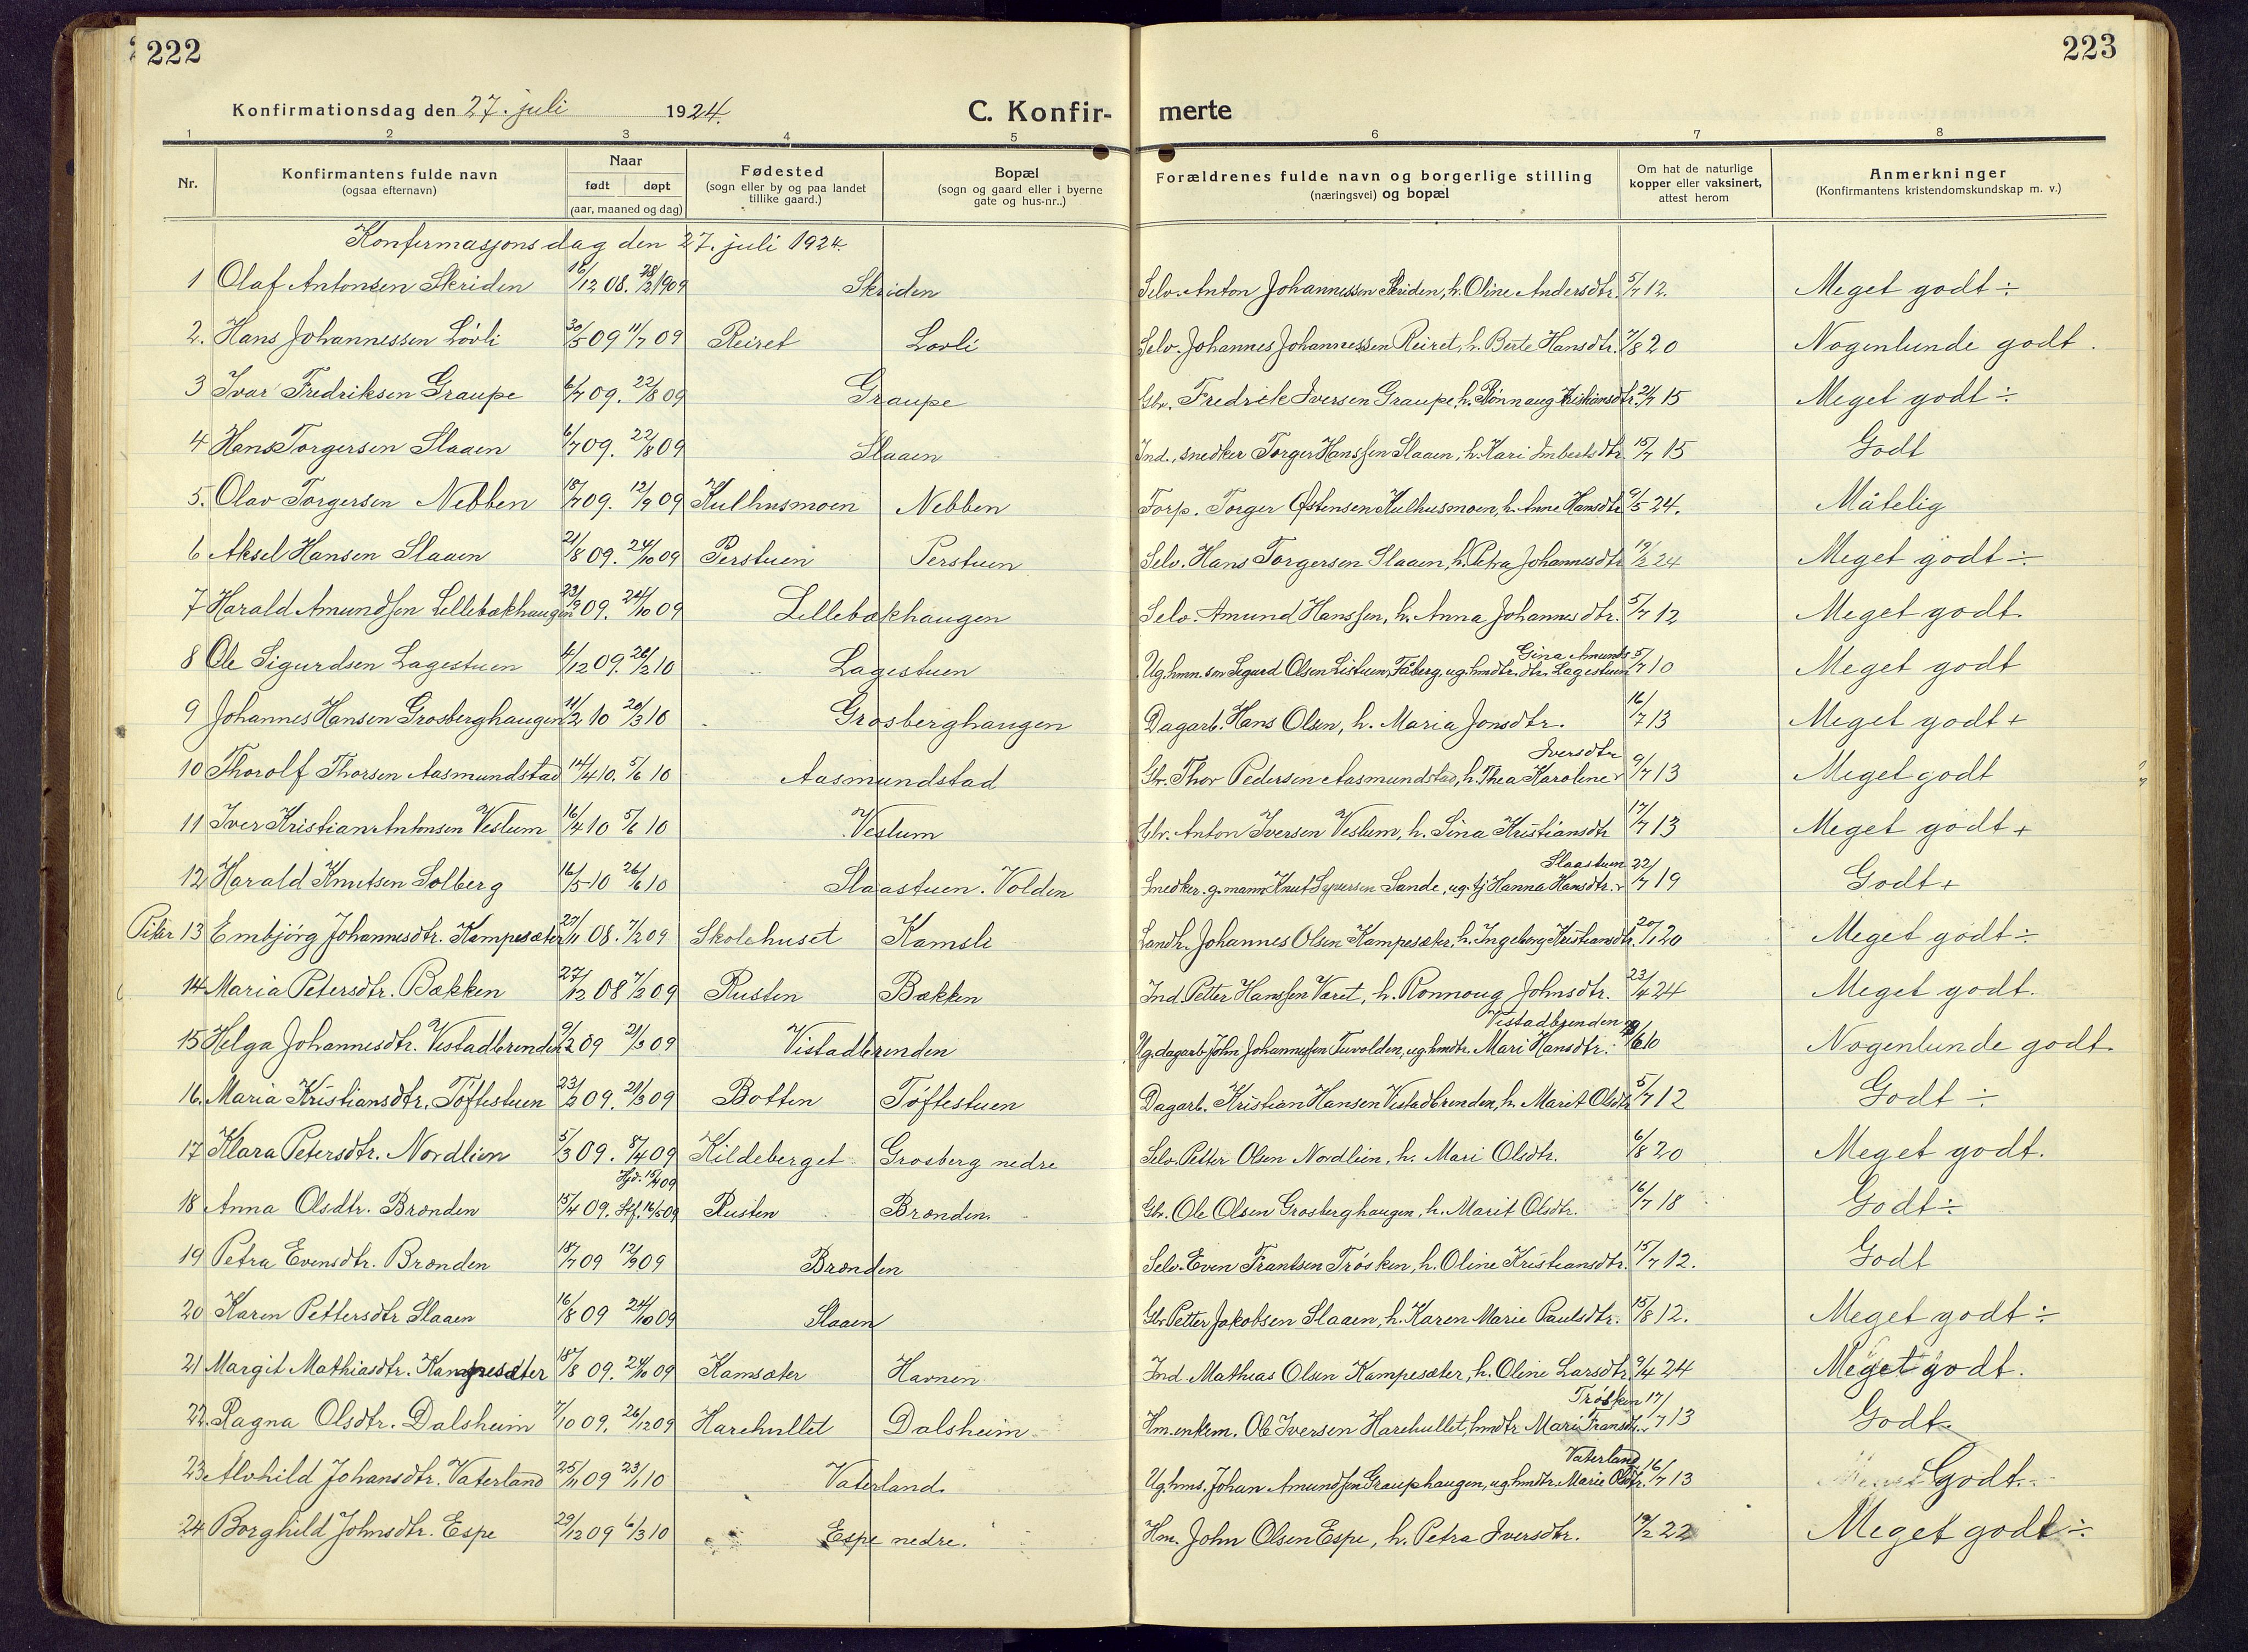 222
223
Konfirmationsdag den 27. juli 1924.
C. Konfirmerte
1 2 3 4 5 6 7 8
Nr.
Konfirmantens fulde navn (ogsaa efternavn)
Naar født døpt (aar, maaned og dag)
Fødested (sogn eller by og paa landet tillike gaard.)
Bopæl (sogn og gaard eller i byerne gate og hus-nr..)
Forældrenes fulde navn og borgerlige stilling (næringsvei) og bopæl
Om hat de naturlige kopper eller vaksinert, attest herom
Anmerkninger (Konfirmantens kristendomskundskap m. v.)
Konfirmasjonsdag den 27. juli 1924.
1 Olaf Antonsen Skriden 16/12 08. 28/2 1909 Skriden Selv. Anton Johannessen Skriden, h. Oline Andersdtr. 5/7 12. Meget godt ÷
2. Hans Johannessen Lövli 30/5 09 11/7 09 Reiret Lovli Selv. Johannes Johannessen Reiret, h. Berte Hansdtr. 7/8 20 Nogenlunde godt.
3 Ivar Fredriksen Graupe 6/7 09. 22/8 09 Graupe Gbr. Fredrik Iversen Graupe, h. Rönnaug Kristiansdtr. 24/7 15 Meget godt ÷
4 Hans Torgersen Slaaen 6/7 09. 22/8 09 Slaaen Ind., snedker Torger Hanssen Slaaen, h. Kari Imbertsdtr. 15/7 15 Godt
5. Olav Torgersen Nebben 18/7 09. 12/9 09 Kulhusmoen Nebben Forp. Torger Østensen Kulhusmoen, h. Anne Hansdtr. 9/5 24. Måtelig
6 Aksel Hansen Slaaen 21/8 09. 24/10 09 Perstuen Perstuen Selv. Hans Torgersen Slaaen, h. Petra Johannesdtr 19/2 24 Meget godt ÷
7 Harald Amundsen Lillebækhaugen 23/9 09. 24/10 09 Lillebækhaugen Selv. Amund Hanssen, h. Anna Johannesdtr. 5/7 12 Meget godt.
8 Ole Sigurdsen Lagestuen 6/12 09. 26/2 10 Lagestuen Ug. hmn. søn Sigurd Olsen Listuen, Fåberg, ug. hmdtr. Gina Amundsdtr. Lagestuen 5/7 10 Meget godt
9 Johannes Hansen Grosberghaugen 11/2 10 20/3 10 Grosberghaugen Dagarb. Hans Olsen, h. Maria Jonsdtr. 16/7 13 Meget godt +
10 Thorolf Thorsen Aasmundstad 14/4 10. 5/6 10 Aasmundstad Gbr. Thor Pedersen Aasmundstad, h. Thea Karoline Iversdtr 9/7 13 Meget godt
11 Iver Kristian Antonsen Veslum 16/4 10 5/6 10 Veslum Gbr. Anton Iversen Veslum, h. Sina Kristiansdtr 17/7 13 Meget godt +
12 Harald Knutsen Solberg 16/5 10 26/6 10 Slaastuen. Volden Snedker. g. mann Knut Syversen Sande, ug. tj Hanna Hansdtr. Slaastuen 22/7 19 Godt +
Piker 13 Embjörg Johannesdtr. Kampesæter 27/11 08. 7/2 09 Skolehuset Kamsli Landh. Johannes Olsen Kampesæter, h. Ingeborg Kristiansdtr. 20/1 20 Meget godt ÷
14 Maria Petersdtr. Bækken 27/12 08 7/3 09 Rusten Bækken Ind. Petter Hanssen Været, h. Ronnoug Johnsdtr. 23/4 24 Meget godt.
15 Helga Johannesdtr. Vistadbrenden 9/2 09 21/3 09 Vistadbrenden Ug. dagarb. John Johannessen Tuvolden, ug. hmdtr. Mari Hansdtr. Vistadbrenden 6 10 Nogenlunde godt.
16. Maria Kristiansdtr. Töftestuen 23/2 09. 21/3 09 Botten Töftestuen Dagarb. Kristian Hansen Vistadbrenden, h. Marit Olsdtr 5/7 12 Godt ÷
17 Klara Petersdtr. Nordlien 5/3 09. 8/4 09 Kildeberget Grosberg nedre Selv. Petter Olsen Nordlien, h. Mari Olsdtr. 6/8 20 Meget godt.
18 Anna Olsdtr. Brænden 15/4 09. Hjd. 15/4 09 Stf. 16/5 09 Rusten Brænden. Gbr. Ole Olsen Grosberghaugen, h. Marit Olsdtr. 16/7 18 Godt ÷
19 Petra Evensdtr. Brænden 18/7 09 12/9 09 Brænden Selv. Even Frantsen Trösken, h. Oline Kristiansdtr. 15/7 12. Godt
20 Karen Pettersdtr Slaaen 16/8 09 24/10 09 Slaaen Gbr Petter Jakobsen Slaaen, h. Karen Marie Paulsdtr. 15/8 12. Meget godt ÷
21 Margit Mathiasdtr. Kampesæter 18/8 09. 24/10 09 Kamsæter Havnen Ind. Mathias Olsen Kampesæter, h. Oline Larsdtr. 9/4 24 Meget godt.
22. Ragna Olsdtr. Dalsheim 7/10 09. 26/12 09 Harehullet Dalsheim Hm. enkem. Ole Iversen Harehullet, hmdtr Mari Fransdtr. Trösken 17/7 13 Godt.
23 Alvhild Johansdtr. Vaterland 25/11 09 23/1 10 Vaterland. Ug. hms. Johan Amundsen Grauphaugen, ug. hmdtr. Marie Olsdtr. Vaterland 16/7 13 Godt.
24 Borghild Johnsdtr. Espe 29/12 09 6/3 10 Espe nedre. Hm. John Olsen Espe, h. Petra Iversdtr. 19/2 22 Meget godt ÷